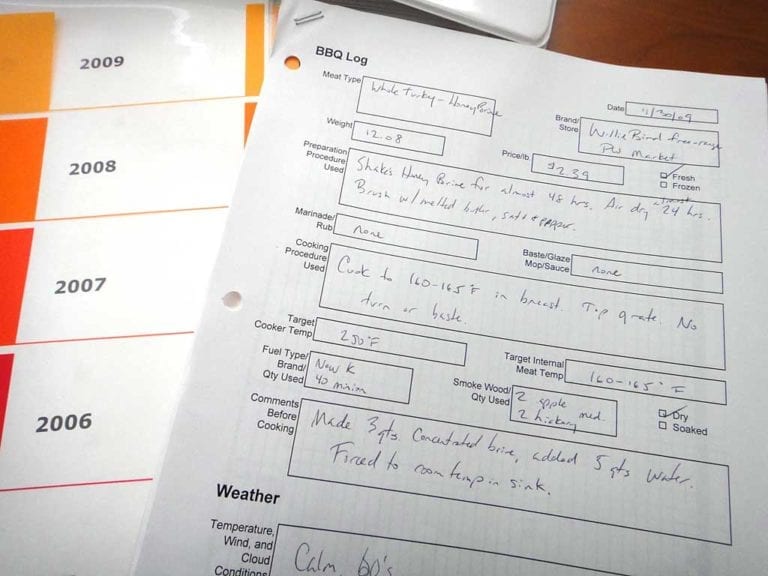 2009
2008
2007
2006
BBQ Log
Meat Type Whole Turkey - Honey Brine
Date /30/09
Weight 12.08
Brand/ Store Willie Bird free-range
PW Market
Price/lb. $2.39
Fresh
Frozen
Preparation Procedure Used Shake's Honey Brine for almost 48 hrs. Air dry almost 24 hrs.
Brush w/melted butter, salt & pepper.
Marinade/ Rub none
Baste/Glaze Mop/Sauce none
Cooking Procedure Used Cook to 160-165°F in breast. Top grate. No
turn or baste.
Target Cooker Temp °F
Target Internal Meat Temp 160-165° F
Fuel Type/ Brand/ Qty Used New K
40 minion
Smoke Wood/ Qty Used 2 apple med.
2 hickory
Dry
Soaked
Comments Before Cooking Made 3 qts. Concentrated brine, added 5 qts water.
Forced to room temp in sink.
Weather
Temperature, Wind, and Cloud Conditions Calm, 60's